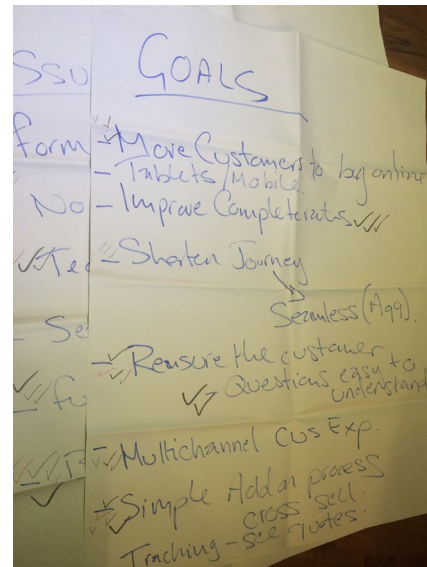 GOALS
- More Customers to buy online
- Tablets/Mobile.
- Improve Completerates
- Shorten Journey
Seamless (Agg).
- Reassure the customer
Questions easy to
understand
- Multichannel Cus Exp.
- Simple Add on process
cross sell.
Tracking - see quotes.
SSU
Form
No
- Se
- Fu